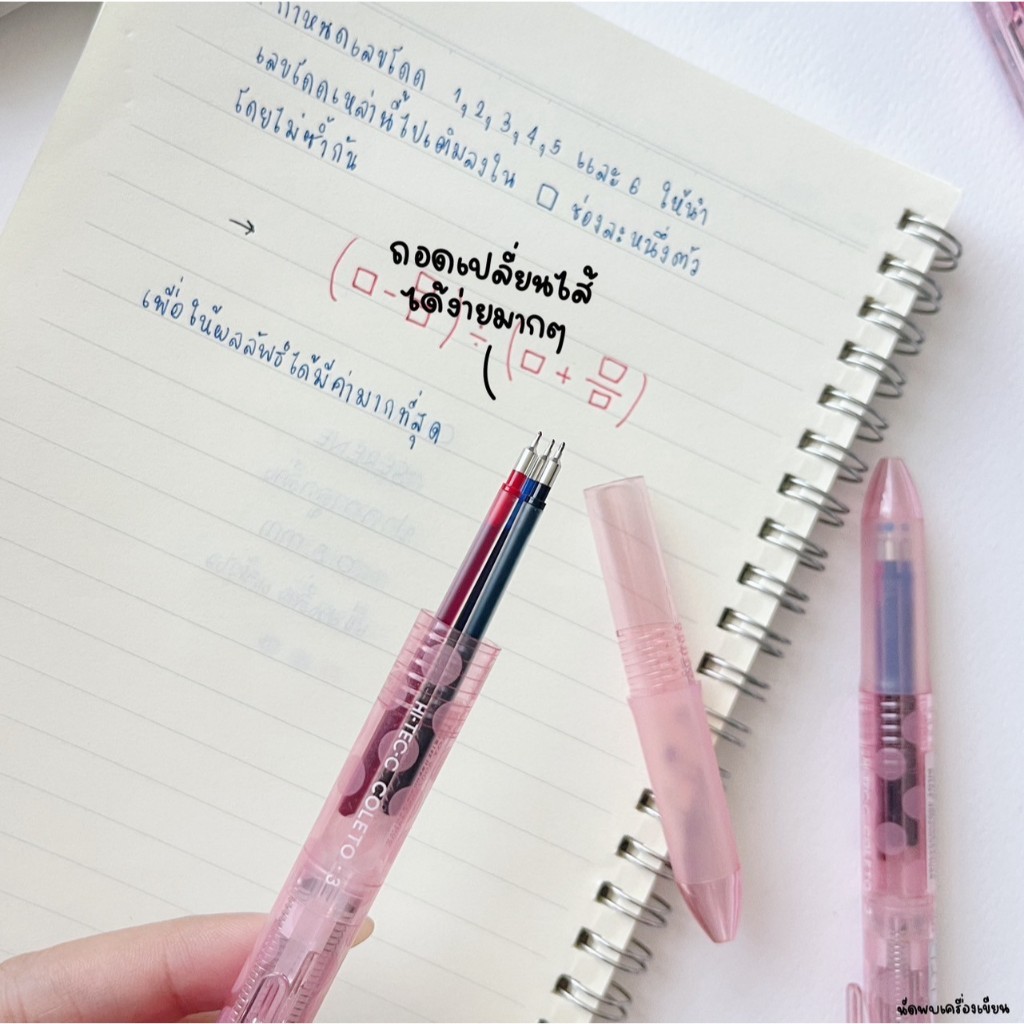 กำหนดเลขโดด 1, 2, 3, 4, 5 และ 6 ให้นำ
เลขโดดเหล่านี้ไปเติมลงใน □ ช่องละหนึ่งตัว
โดยไม่ซ้ำกัน
→
(□ - □/□) ÷ (□ + □/□)
ถอดเปลี่ยนไส้
ได้ง่ายมากๆ
เพื่อให้ผลลัพธ์ได้มีค่ามากที่สุด
HI-TEC-C COLETO : 3
นัดพบเครื่องเขียน